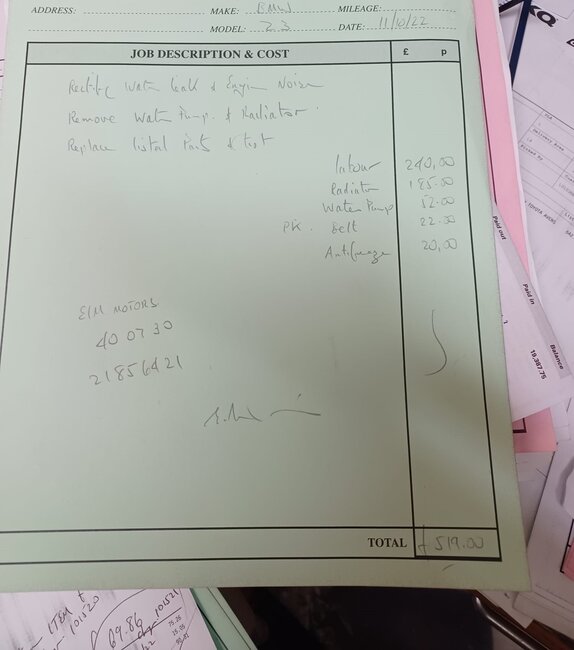 ADDRESS: MAKE: BMW MILEAGE:
MODEL: Z3 DATE: 11/10/22
JOB DESCRIPTION & COST £ p
Rectify Water leak & Engine Noise
Remove Water Pump. & Radiator
Replace listed Parts & test
labour 240,00
Radiator 185.00
Water Pump 52.00
PK. Belt 22.00
Antifreeze 20,00
E/M MOTORS
40 07 30
21856421
TOTAL £ 519.00
Paid out
Paid in
Balance
19,387.75
TOYOTA AVENS
ITEM
101520
69.86
10152